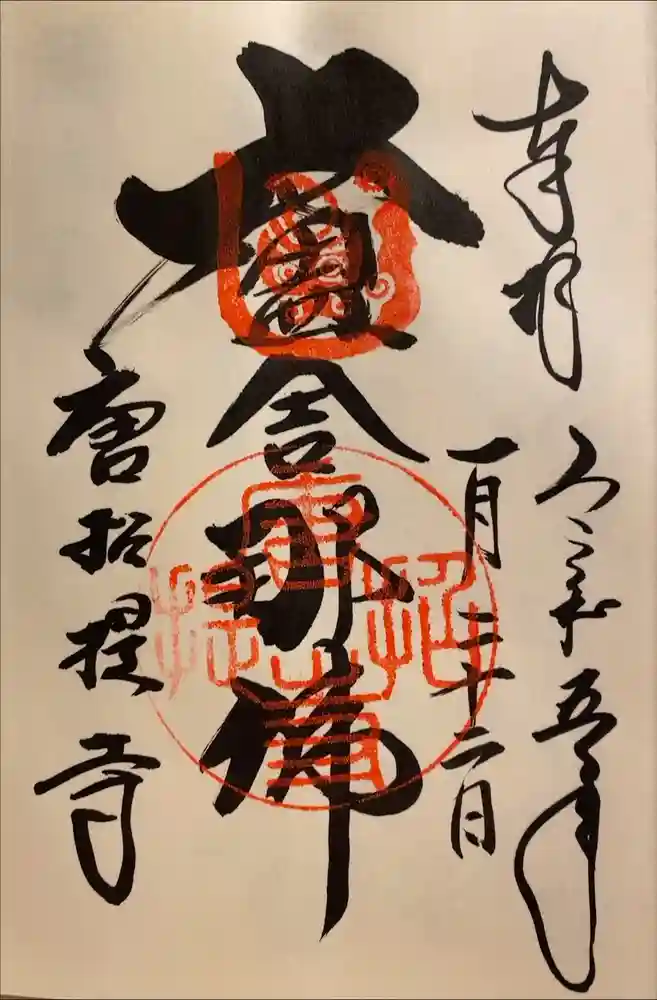 奉拝 令和五年
一月二十二日
盧舎那佛
唐招提寺